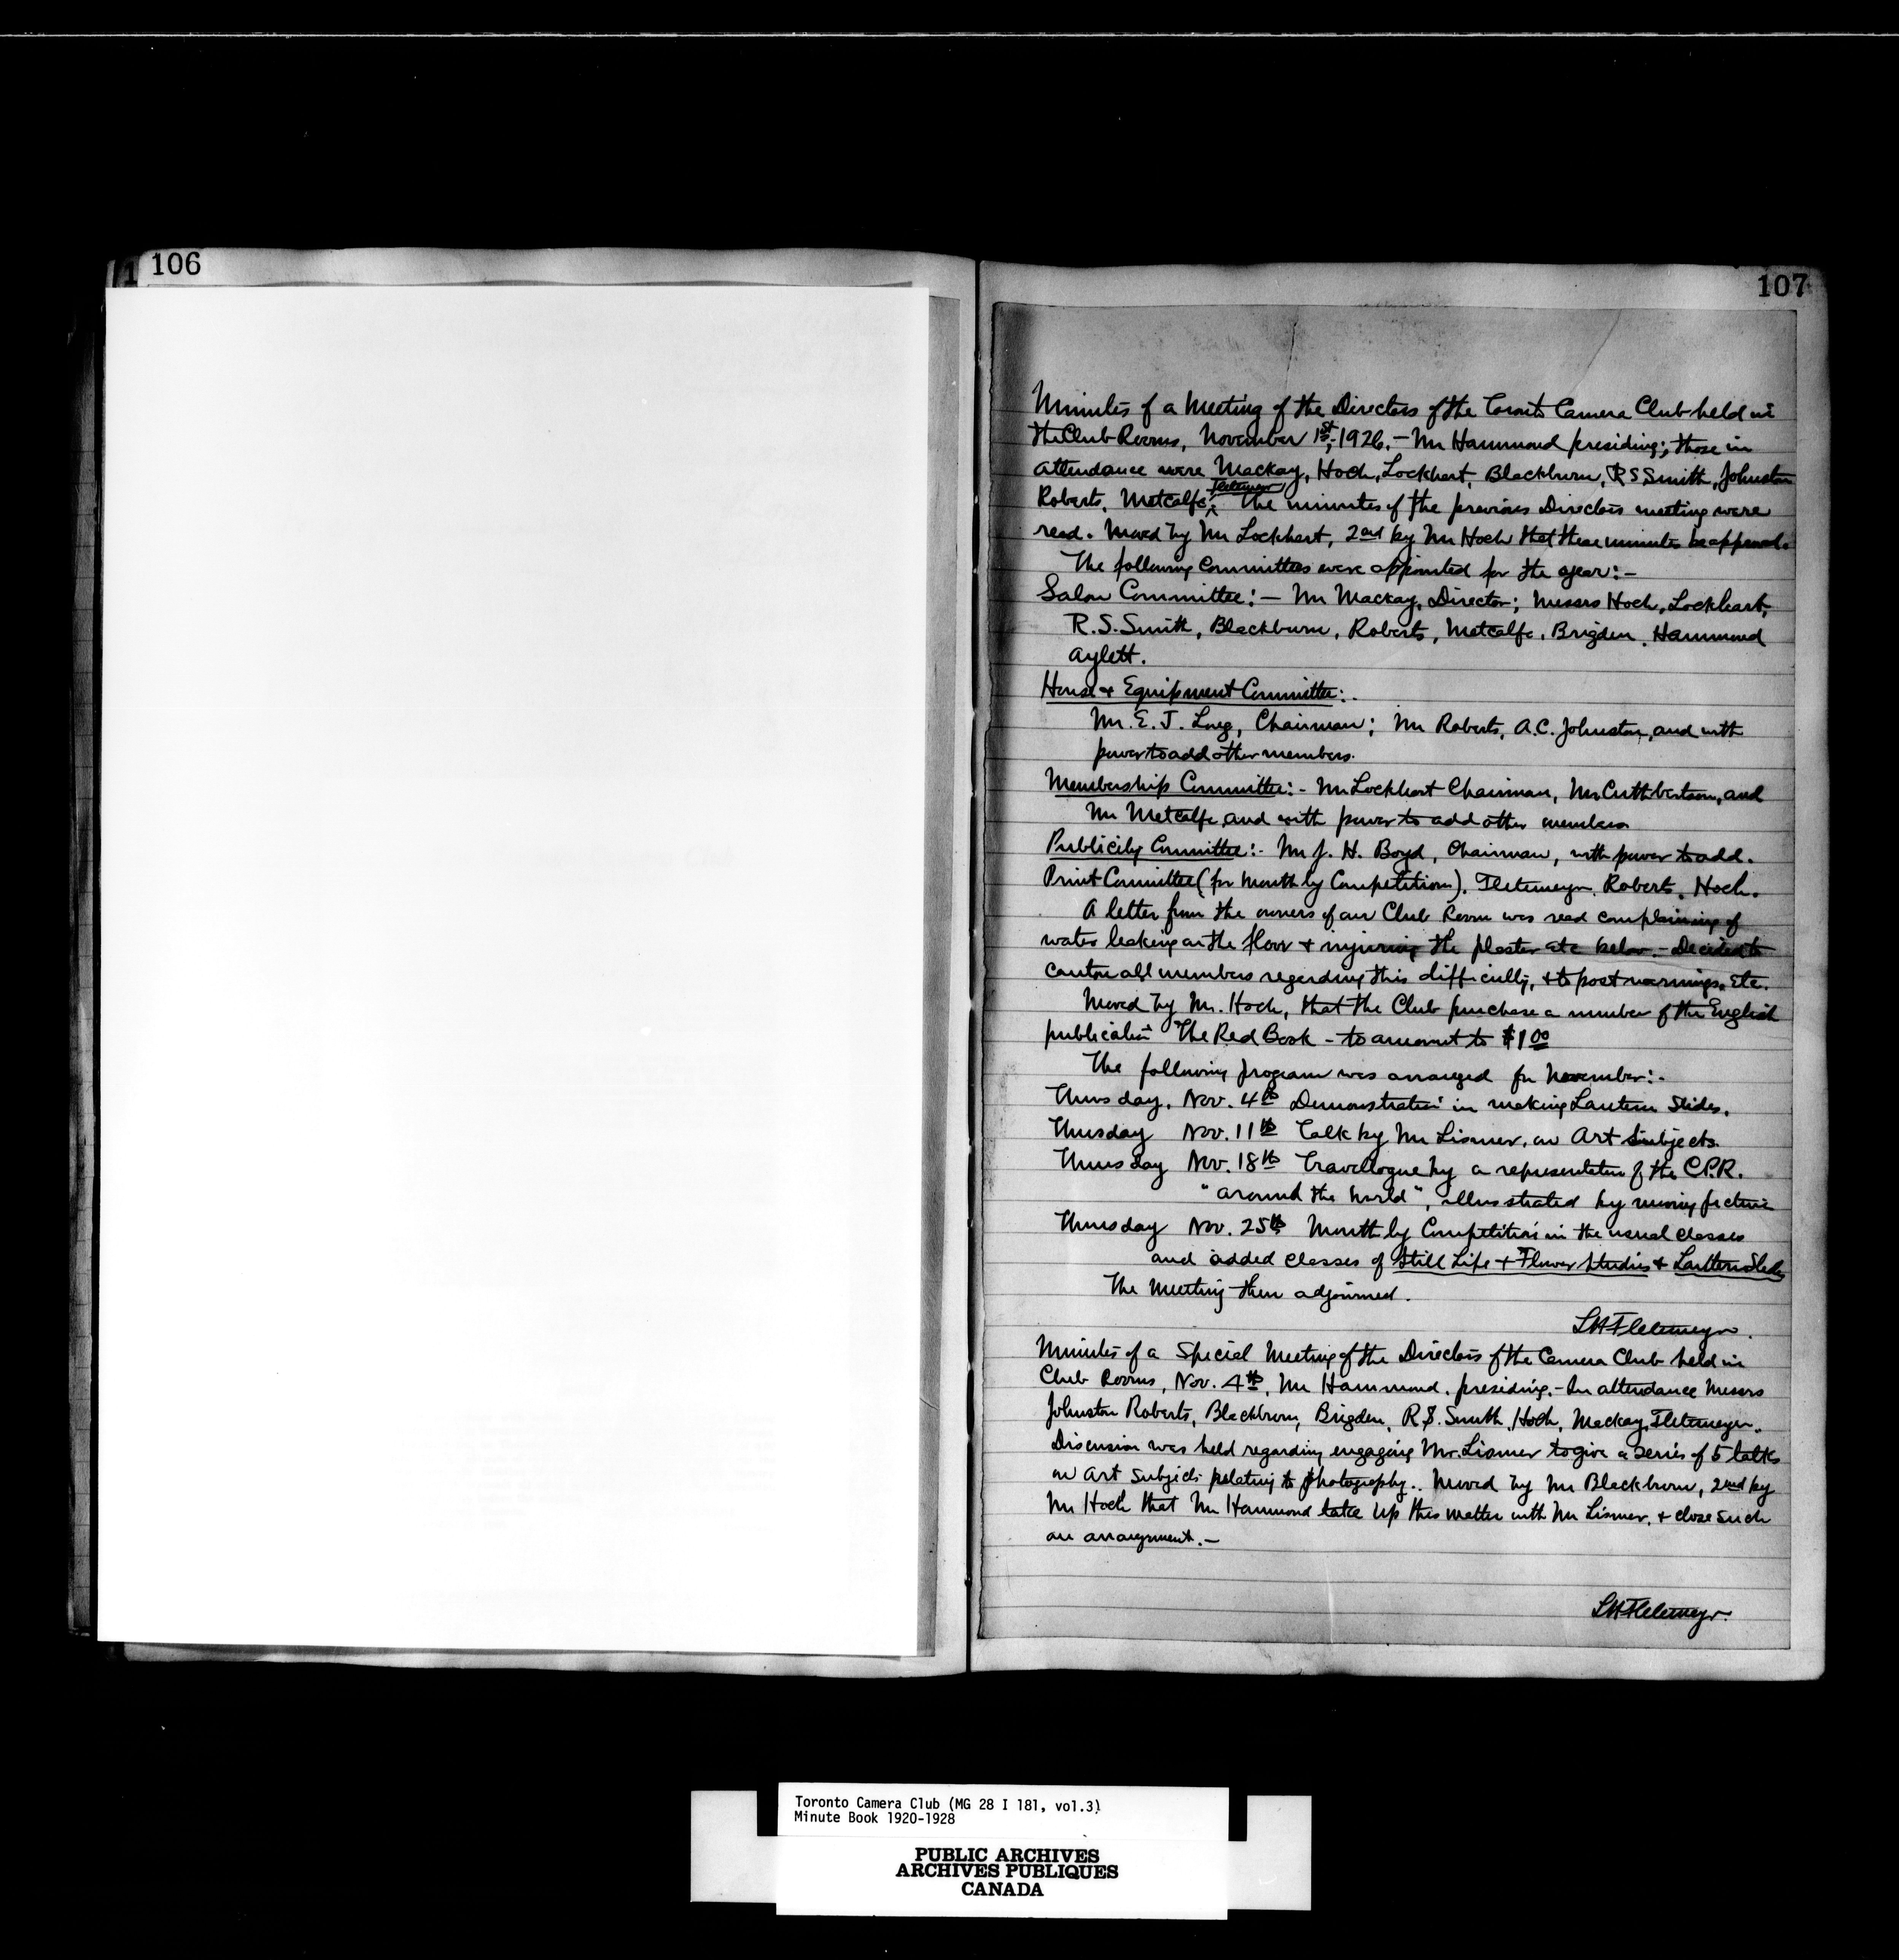 106
107
Minutes of a Meeting of the Directors of the Toronto Camera Club held in
the Club Rooms, November 1st, 1926. - Mr Hammond presiding; those in
attendance were Mackay, Hoch, Lockhart, Blackburn, R S Smith, Johnston
Fletemeyer
Roberts, Metcalfe. The minutes of the previous Directors meeting were
read. Moved by Mr Lockhart, 2nd by Mr Hoch that these minutes be approved.
The following Committees were appointed for the year:-
Salon Committee:- Mr Mackay, Director; Messrs Hoch, Lockhart,
R.S. Smith, Blackburn, Roberts, Metcalfe, Brigden, Hammond
Aylett.
House & Equipment Committee:.
Mr. E. J. Chairman; Mr Roberts, A.C. Johnston, and with
power to add other members.
Membership Committee:- Mr Lockhart Chairman, Mr Cuthbertson, and
Mr Metcalfe, and with power to add other members
Publicity Committee:- Mr J. H. Boyd, Chairman, with power to add.
Print Committee (for Monthly Competitions). Fletemeyer, Roberts, Hoch.
A letter from the owners of our Club Room was read complaining of
water leaking on the floor & injuring the plaster etc below. - Decided to
caution all members regarding this difficulty, & to post warnings, etc.
Moved by Mr. Hoch, that the Club purchase a number of the English
publication "The Red Book - to amount to $1 00
The following program was arranged for November:-
Thursday, Nov. 4th Demonstration in making Lantern Slides.
Thursday Nov. 11th Talk by Mr Lismer, on Art Subjects.
Thursday Nov. 18th Travelogue by a representative of the C.P.R.
"around the World", illustrated by moving pictures
Thursday Nov. 25th Monthly Competition in the usual classes
and added classes of Still Life & Flower Studies & Lantern Slides
The Meeting then adjourned.
LH Fletemeyer.
Minutes of a Special Meeting of the Directors of the Camera Club held in
Club Rooms, Nov. 4th, Mr Hammond, presiding. - In attendance Messrs
Johnston Roberts, Blackburn, Brigden, R S. Smith, Hoch, Mackay, Fletemeyer.
Discussion was held regarding engaging Mr. Lismer to give a series of 5 talks
on Art Subjects relating to photography.. Moved by Mr Blackburn, 2nd by
Mr Hoch that Mr Hammond take up this matter with Mr Lismer, & close such
an arrangement. -
LH Fletemeyer.
Toronto Camera Club (MG 28 I 181, vol.3)
Minute Book 1920-1928
PUBLIC ARCHIVES
ARCHIVES PUBLIQUES
CANADA